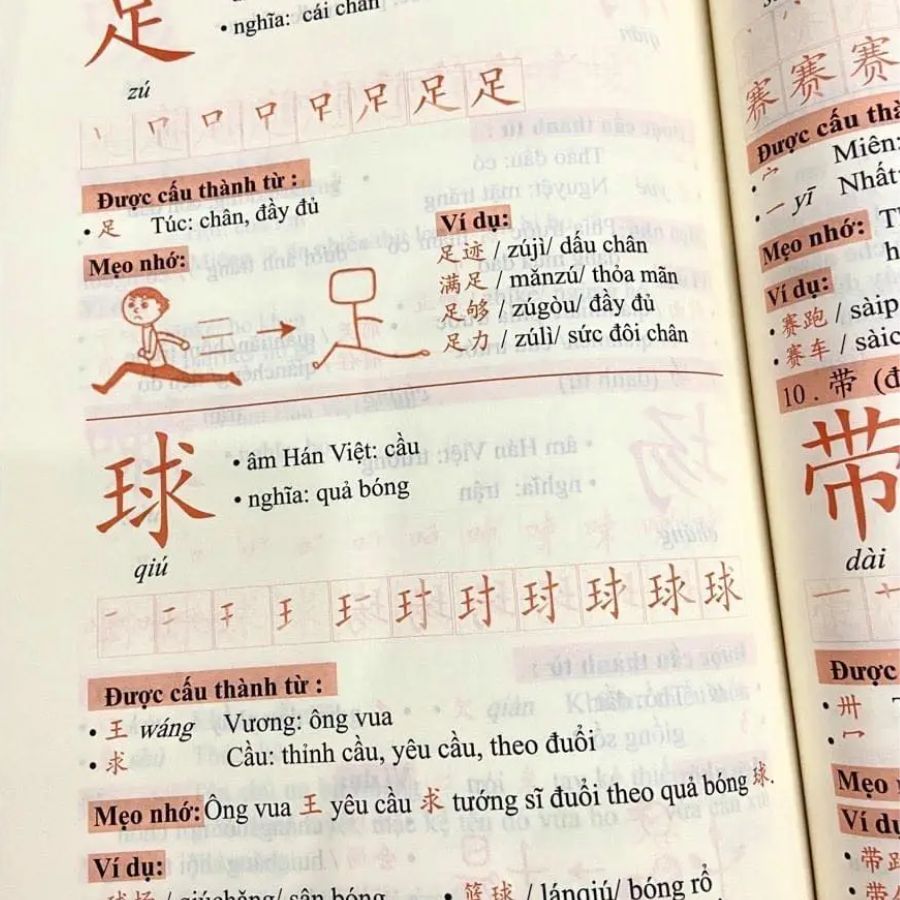 足
• nghĩa: cái chân
zú
足 足 足
Được cấu thành từ :
• 足 Túc: chân, đầy đủ
Mẹo nhớ:
Ví dụ:
足迹 / zújì/ dấu chân
满足 / mǎnzú/ thỏa mãn
足够 / zúgòu/ đầy đủ
足力 / zúlì/ sức đôi chân
球
• âm Hán Việt: cầu
• nghĩa: quả bóng
qiú
球 球
Được cấu thành từ :
• 王 wáng Vương: ông vua
• 求 Cầu: thỉnh cầu, yêu cầu, theo đuổi
Mẹo nhớ: Ông vua 王 yêu cầu 求 tướng sĩ đuổi theo quả bóng 球.
Ví dụ:
球场 / qiúchǎng/ sân bóng
• 篮球 / lánqiú/ bóng rổ
赛 赛 赛
Được cấu
• 宀 Miên:
• 一 yī Nhất:
Mẹo nhớ:
Ví dụ:
• 赛跑 /
• 赛车 /
10. 带
带
dài
Được
• 卅
• 冖
Mẹo
Ví